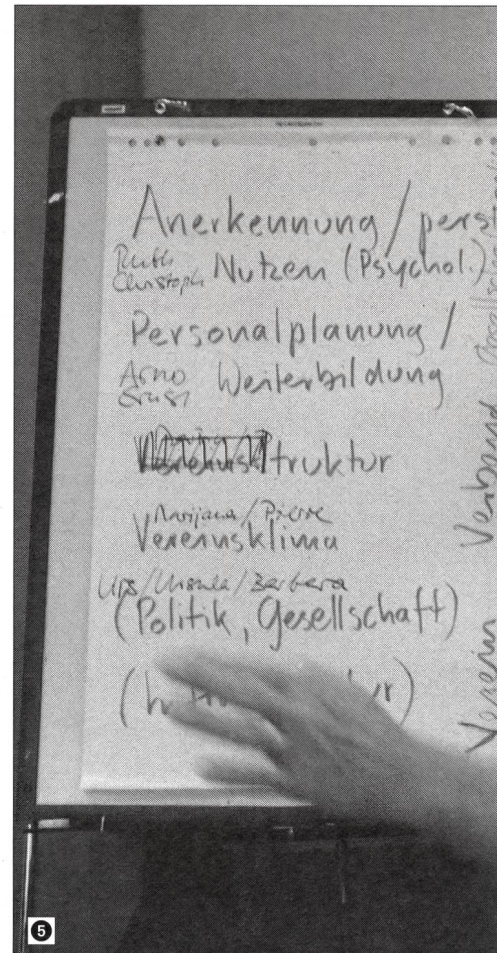 Anerkennung / pers
Ruth
Christoph Nutzen (Psychol.)
Personalplanung /
Arno
Ernst Weiterbildung
Vereinsstruktur
Marijana / Pierre
Vereinsklima
Urs / Ursula / Barbara
(Politik, Gesellschaft)
(
Verein Verband Gesellschaft
5